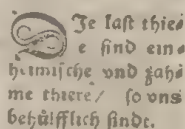 DJe laſt thie⸗
re ſind ein⸗
heimiſche vnd zah⸗
me thiere/ ſo vns
behülfflich ſindt.